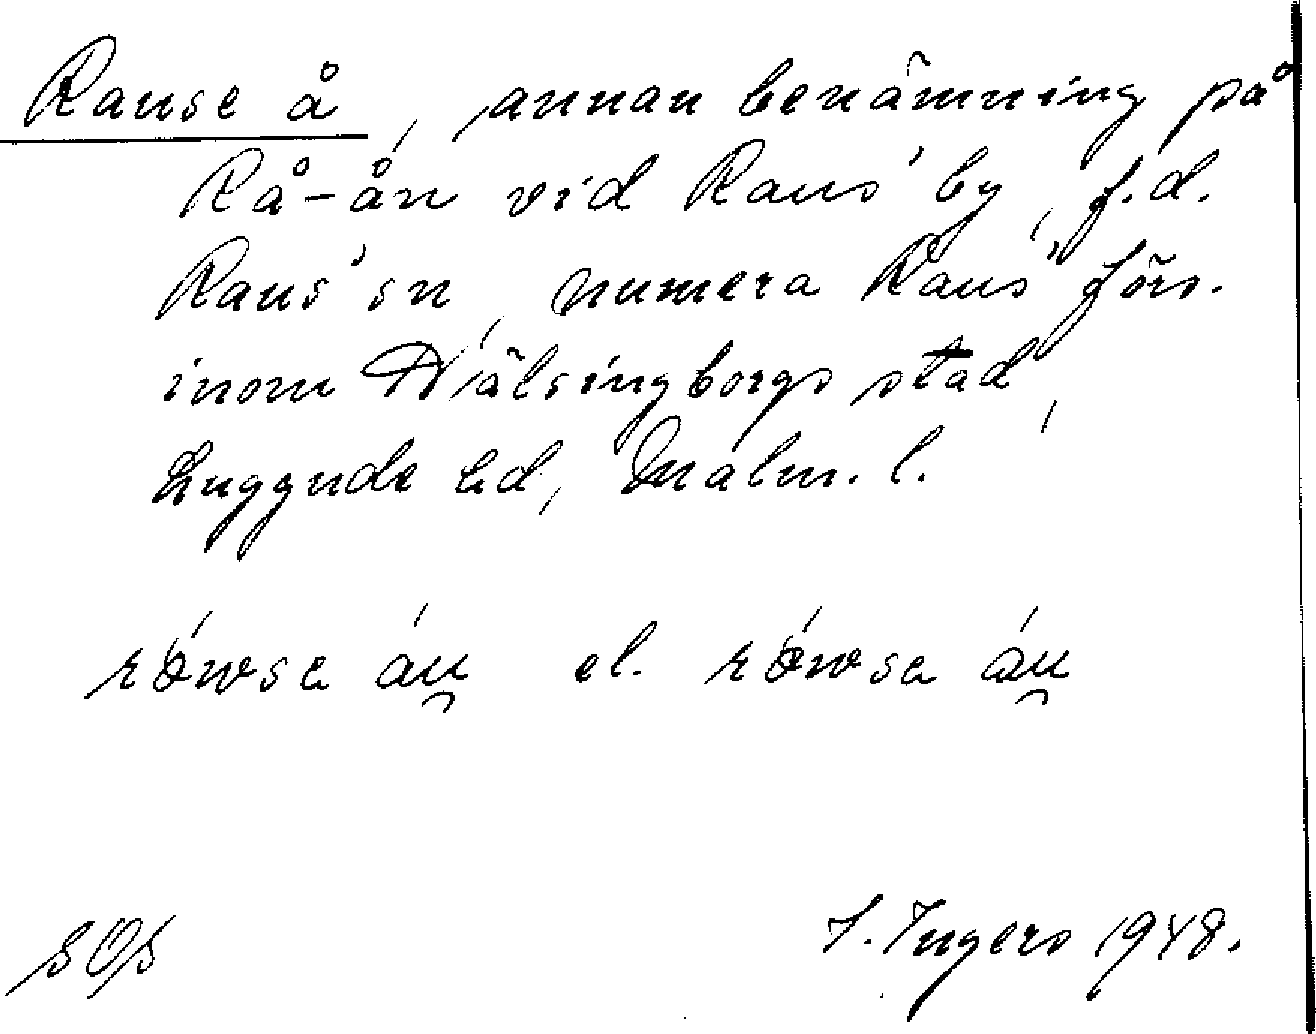 Rause å, annan benämning på
Rå-ån vid Raus' by, f.d.
Raus' sn, numera Raus' förs.
inom Hälsingborgs stad,
Luggude hd, Malm. l.
el.
SOS
I. Ingers 1948.